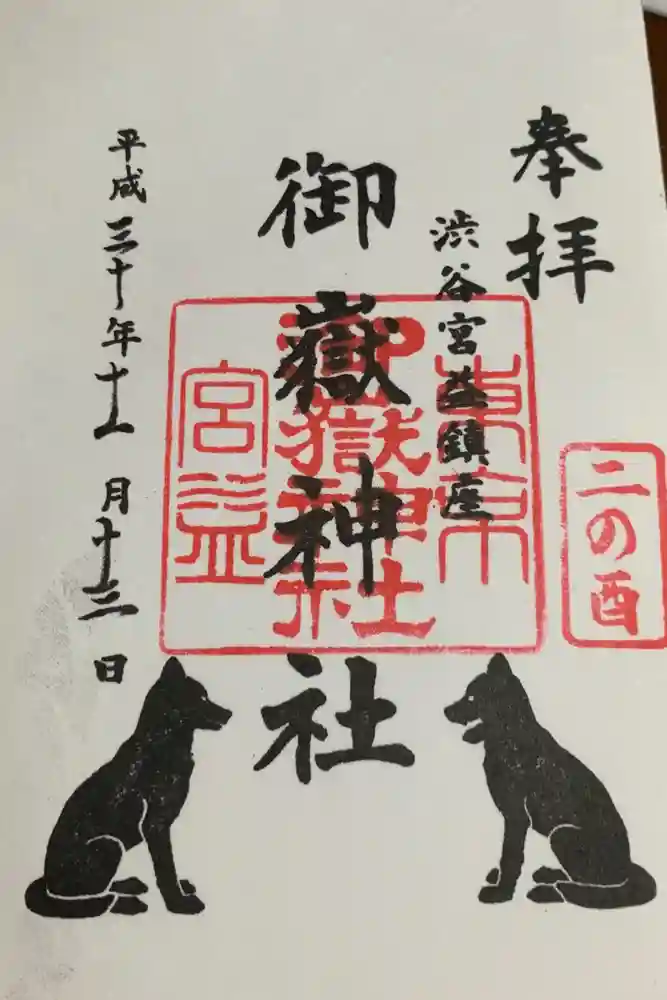 奉拝
渋谷宮益鎮座
御嶽神社
平成三十年十一月十三日
東京
御嶽神社
宮益
二の酉